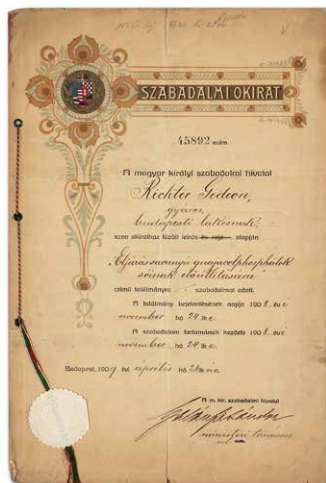 SZABADALMI OKIRAT
45892 szám.
A magyar királyi szabadalmi hivatal
Richter Gedeon,
gyáros,
budapesti lakosnak,
ezen okirathoz fűzött leírás és rajz alapján
„Eljárás savanyú guajacolphosphátok
sóinak előállítására
című találmányra szabadalmat adott.
A találmány bejelentésének napja 1908 évi
november hó 24 én.
A szabadalom tartamának kezdete 1908 évi
november hó 24 én.
Budapest, 1909 évi április hó 28
A m. kir. szabadalmi hivatal
miniszteri tanácsos